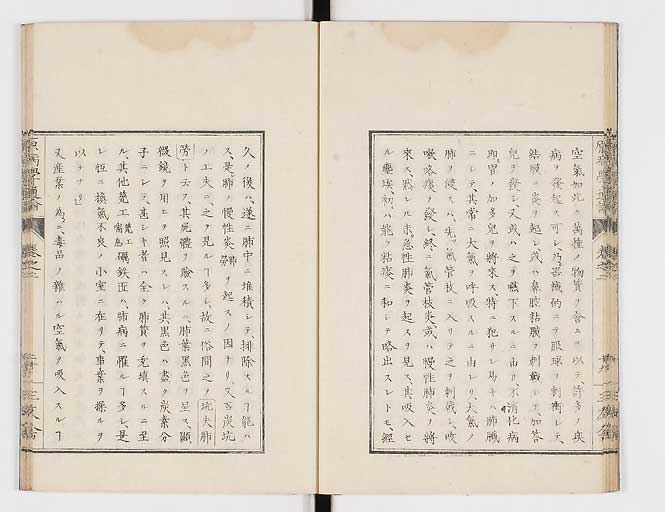 空氣如此ク萬種ノ物質ヲ含ムヲ以テ、許多ノ疾
病ヲ發起ス可シ、乃器械的ニテ眼球ヲ刺衝シテ、
結膜ノ炎ヲ起シ、或ハ鼻腔粘膜ヲ刺戟シテ、加答
兒ヲ發シ、又或ハ之ヲ嚥下スルニ由リ不消化病
即胃ノ加多兒ヲ將來ス、特ニ犯サレ易キハ肺臟
ニシテ、其常ニ大氣ヲ呼吸スルニ由リ、大氣ノ
肺ヲ侵スハ、先氣管枝ニ入リテ之ヲ刺戟シ、咳
嗽喀痰ヲ發シ、終ニ氣管枝炎、或ハ慢性肺炎ヲ將
來ス、然レ𪜈未急性肺炎ヲ起スヲ見ス、其吸入セ
ル塵埃、初ハ能ク粘痰ニ和シテ略出スレトモ、經
久ノ後ハ、遂ニ肺中ニ堆積シテ、排除スルヿ能ハ
ス、是肺ノ慢性炎肺勞ヲ起スノ因ナリ、又石炭坑
ノ工夫ニ之ヲ見ルヿ多シ、故ニ俗間之ヲ坑夫肺
勞ト云フ、其死體ヲ驗スルニ、肺葉黑色ヲ呈ス、顯
微鏡ヲ用ヒテ照見スレハ、其黑色ハ盡ク炭素分
子ニシテ、甚シキ者ハ全ク肺質ヲ充填スルニ至
ル、其他礱工礪鉄匠ハ、肺病ニ罹ルヿ多シ、是
レ恒ニ換氣不良ノ小室ニ在リテ、事業ヲ操ルヲ
以テナリ
又産業ノ為ニ、毒品ノ雜ハル空氣ヲ吸入スルヿ
原病學通論
卷之二
三友舍